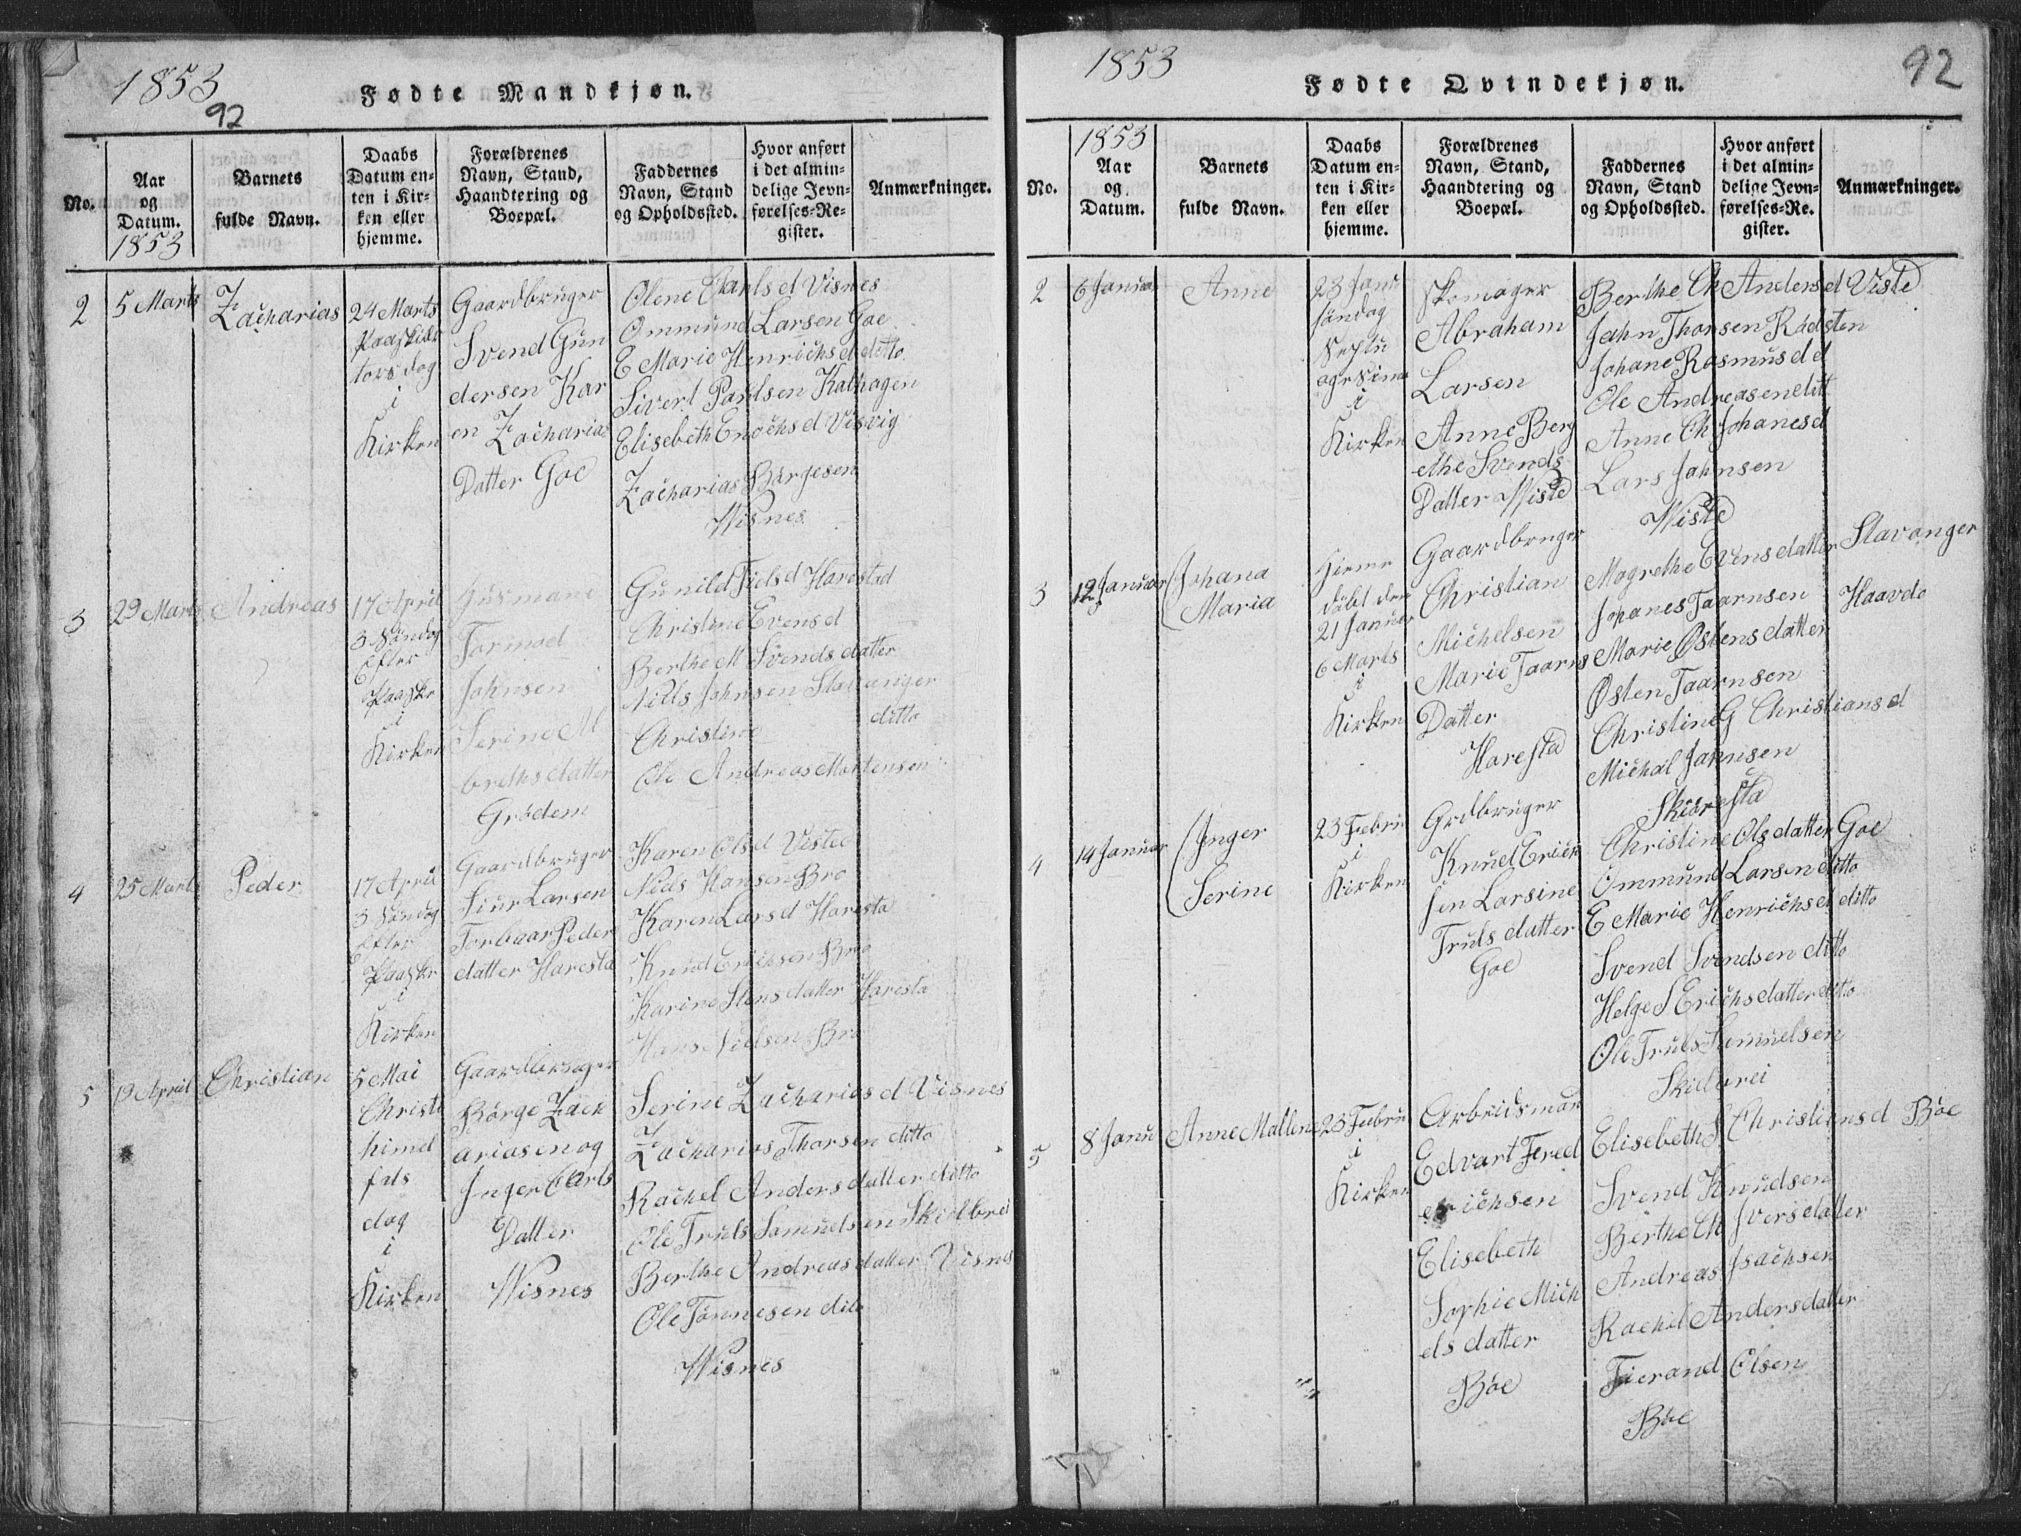 1853
92
Fødte Mandkjøn.
No.
Aar og Datum.
1853
Barnets fulde Navn.
Daabs Datum enten i Kirken eller hjemme.
Forældrenes Navn, Stand, Haandtering og Boepæl.
Faddernes Navn, Stand og Opholdssted.
Hvor anført i det almindelige Jevnførelses-Register.
Anmærkninger.
2
5 Marts
Zacharias
24 Marts
tors dag
i
Kirken
Gaardbruger
Svend Gun
dersen Kar
en Zacharias
Datter Goe
Olene Carls d Visnes
Ommund Larsen Goe
E Marie Henrichs d ditto
Sivert Paulsen
Elisebeth Enochs d Visvig
Zacharias Børgesen
Wisnes
3
29 Marts
Andreas
17 April
3 Søndag
Efter
Paaske
i
Kirken
Huusmand
Tormod
Johnsen
Serine M
breths datter
Grødem
Gunild Tiels d Harestad
Christine Evens d
Berthe M Svends datter
Niels Johnsen Stavanger
Christine ditto
Ole Andreas Mortensen
4
25 Marts
Peder
17 April
3 Søndag
Efter
Paaske
i
Kirken
Gaardbruger
Siur Larsen
Torbaar Peder
datter Haresta
Karen Ols d Viste
Niels Hansen Bro
Karen Lars d Haresta
Knud Erichsen Bro
Karine Stens datter Haresta
Hans Nielsen Bro
5
19 April
Christian
5 Mai
Christi
himel
farts
dag
i
Kirken
Gaardbruger
Børge Zach
ariasen og
Inger Carls
Datter
Wisnes
Serine Zacharias d Visnes
Zacharias Thorsen ditto
Rachel Anders datter ditto
Ole Truls Samuelsen Skielbrei
Berthe Andreas datter Visnes
Ole Tønnesen dito
Wisnes
1853
92
Fødte Qvindekjøn.
No.
1853
Aar og Datum.
Barnets fulde Navn.
Daabs Datum enten i Kirken eller hjemme.
Forældrenes Navn, Stand, Haandtering og Boepæl.
Faddernes Navn, Stand og Opholdssted.
Hvor anført i det almindelige Jevnførelses-Re.gister.
Anmærkninger.
2
6 Januar
Anne
23 Janu
søndag
Septu
agesima
i
Kirken
Skomager
Abraham
Larsen
Anne Berg
ethe Svends
Datter Wiste
Berthe Ch Anders d Viste
Jahn Thorsen Rødsten
Johane Rasmus d d
Ole Andreasen ditt
Anne Ch Johanes d
Lars Johnsen
Wiste
3
12 Januar
Johana
Maria
Hieme
døbt den
21 Januar
6 Marts
i
Kirken
Gaardbruger
Christian
Michelsen
Marie Taarns
Datter
Haresta
Magrethe Evens datter Stavanger
Johanes Taarnsen Haavde
Marie Østens datter
Østen Taarnsen
Christine G Christians d
Michal Johnsen
Skiøresta
4
14 Januar
Inger
Serine
23 Febru
i
Kirken
Grdbruger
Knud Erich
sen Larsine
Truls datter
Goe
Christine Ols datter Goe
Ommund Larsen ditto
E Marie Henrichs d ditto
Svend Svendsen ditto
Helge S Erichs datter ditto
Ole Truls Samuelsen
Skielbrei
5
8 Janu
Anne Mallene
23 Febru
i
Kirken
Arbeidsmand
Edvart Fred
erichsen
Elisebeth
Sophie Mich
els datter
Bøe
Elisebeth S Christians d Bøe
Svend Knudsen
Berthe Ch Ivers datter
Andreas Isachsen
Rachel Anders datter
Fierand Olsen
Bøe